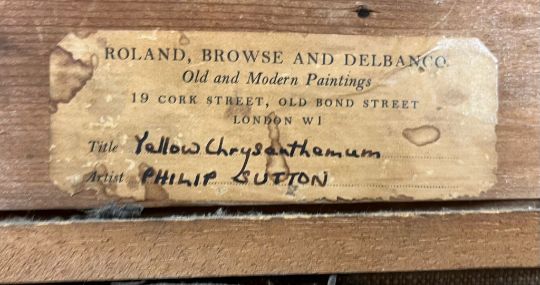 ROLAND, BROWSE AND DELBANCO
Old and Modern Paintings
19 CORK STREET, OLD BOND STREET
LONDON W1
Title Yellow Chrysanthamum
Artist PHILIP SUTTON